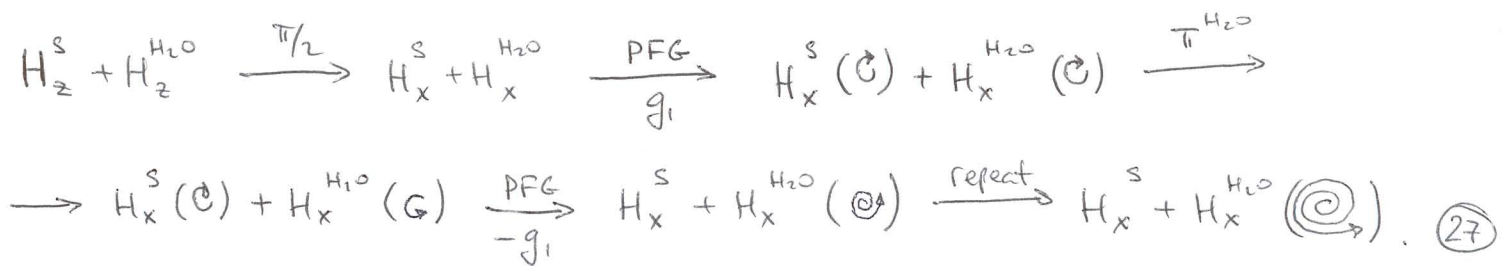 H_z^S + H_z^{H₂O} —π/2→ H_x^S + H_x^{H₂O} —PFG g₁→ H_x^S (↻) + H_x^{H₂O} (↻) —π^{H₂O}→
→ H_x^S (↻) + H_x^{H₂O} (↺) —PFG -g₁→ H_x^S + H_x^{H₂O} (↺) —repeat→ H_x^S + H_x^{H₂O} (↺). ㉗